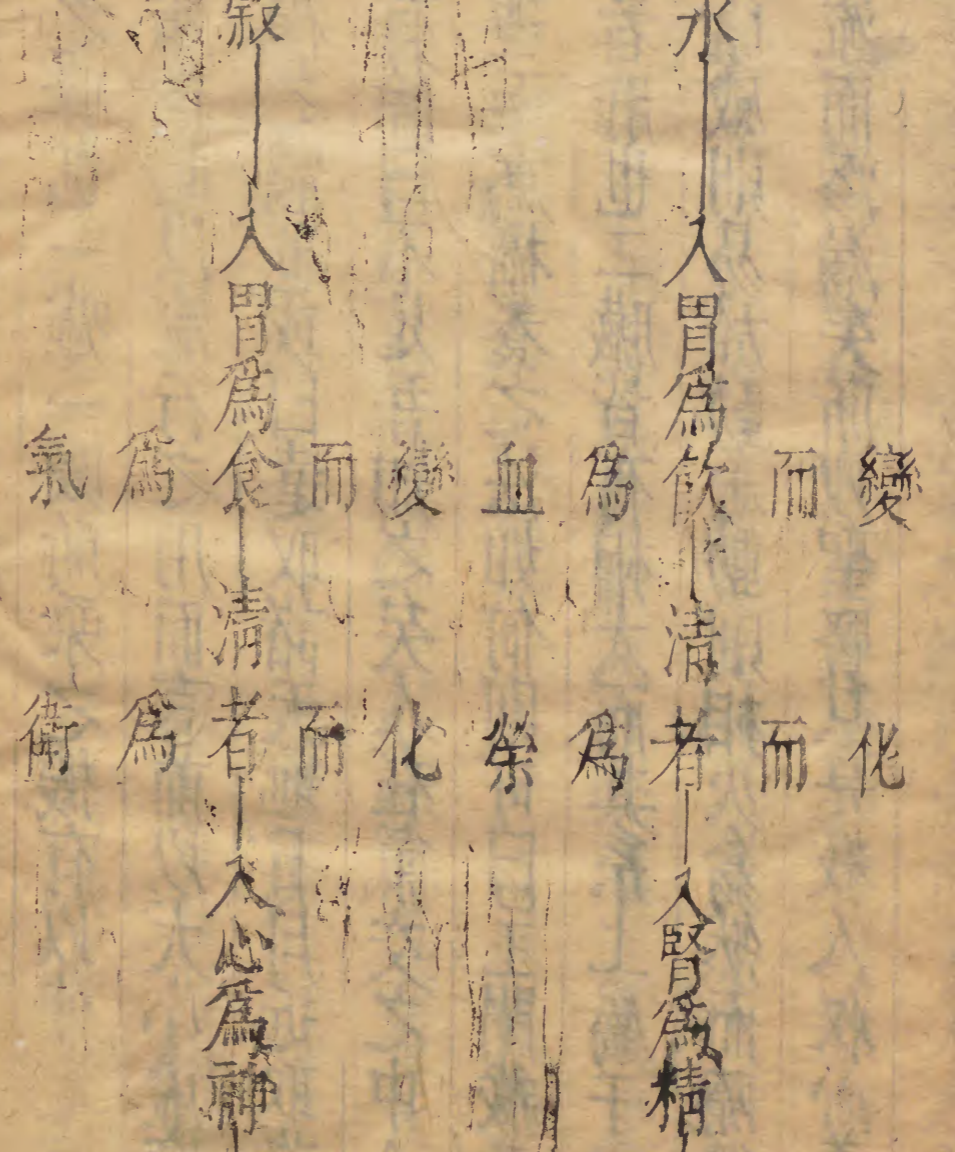 水入胃爲飲清者入腎爲精
變而爲血
化而爲榮
入胃爲食清者入心爲神
變而爲氣
化而爲衛